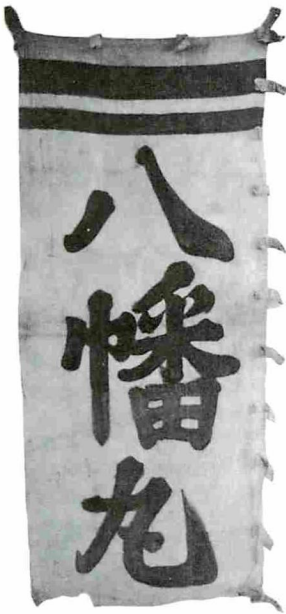 八幡丸